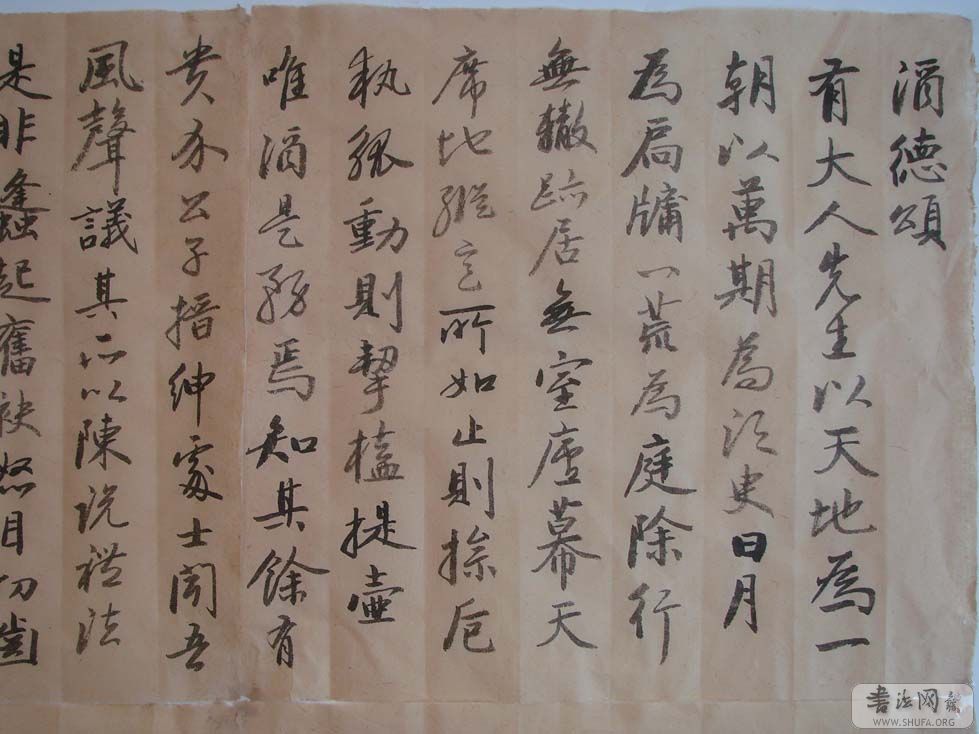 酒德頌
有大人先生以天地爲一
朝以萬期為須臾日月
為扃牖八荒為庭除行
無轍跡居無室廬幕天
席地縱意所如止則操卮
執觚動則挈榼提壺
唯酒是務焉知其餘有
貴介公子搢紳處士聞吾
風聲議其所以陳說禮法
是非蠭起奮袂怒目切齒
書法网
WWW.SHUFA.ORG